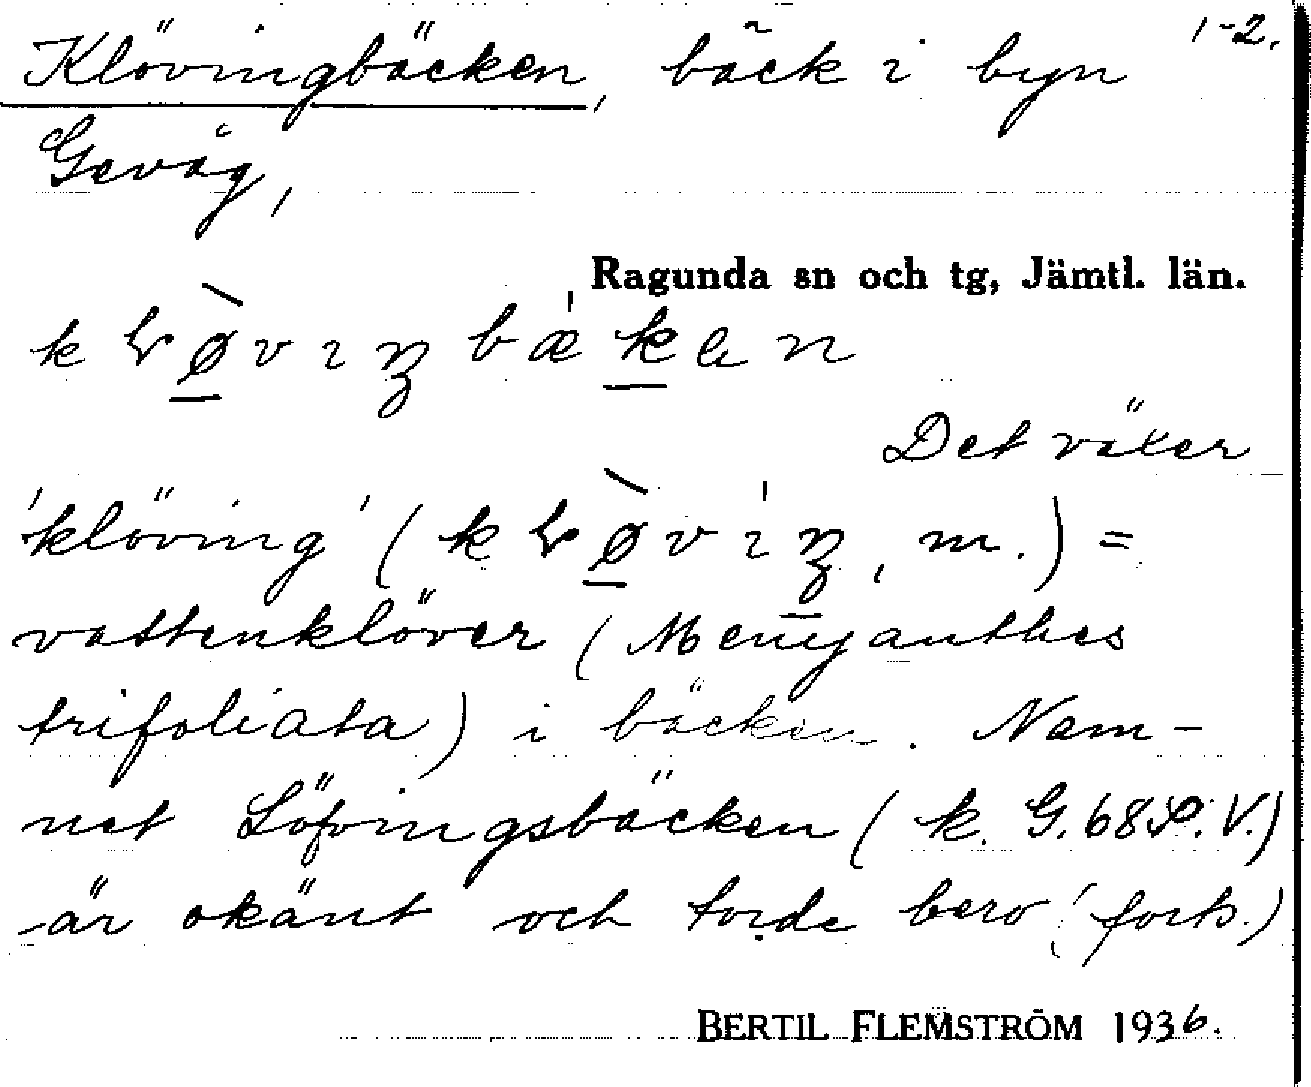 1-2.
Klövingbäcken, bäck i byn
Gevåg,
Ragunda sn och tg, Jämtl. län.
Det växer
'klöving' ( m.) =
vattenklöver (Menyanthes
trifoliata) i bäcken. Nam-
net Löfvingsbäcken (k. G. 68 V.)
är okänt och torde bero (forts.)
BERTIL FLEMSTRÖM 1936.